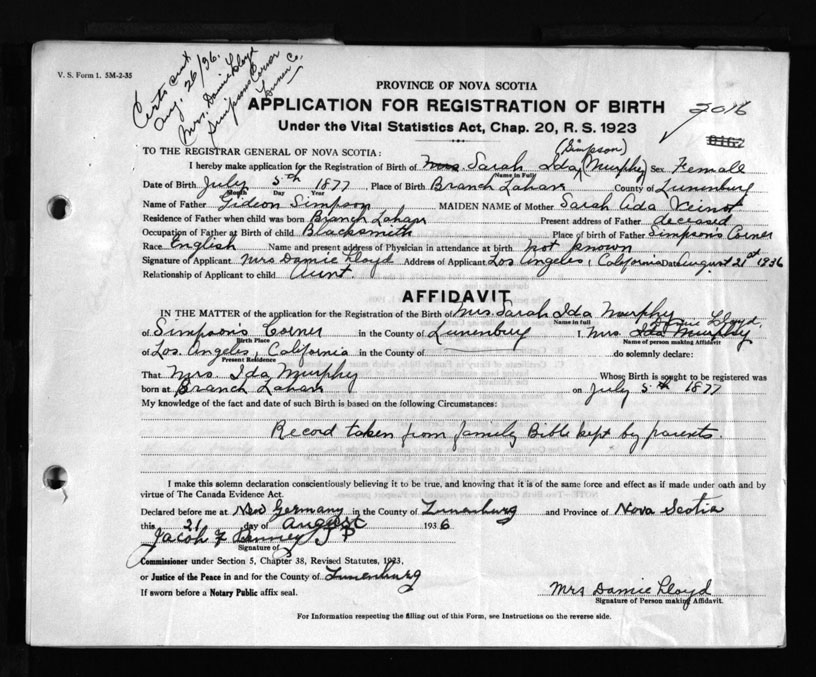 V. S. Form 1. 5M-2-35
Certs sent
Aug. 26/36.
Mrs. Damie Lloyd
Simpsons Corner
Lunen Co.
PROVINCE OF NOVA SCOTIA
APPLICATION FOR REGISTRATION OF BIRTH
Under the Vital Statistics Act, Chap. 20, R. S. 1923
2016
TO THE REGISTRAR GENERAL OF NOVA SCOTIA:
I hereby make application for the Registration of Birth of Mrs Sarah Ida (Simpson) (Murphy) Sex Female
Name in Full
Date of Birth July 5th 1877 Place of Birth Branch Lahave County of Lunenburg
Month Day Year
Name of Father Gideon Simpson MAIDEN NAME of Mother Sarah Ada Veinot
Residence of Father when child was born Branch Lahave Present address of Father deceased
Occupation of Father at Birth of child Blacksmith Place of birth of Father Simpson's Corner
Race English Name and present address of Physician in attendance at birth not known
Signature of Applicant Mrs Damie Lloyd Address of Applicant Los Angeles, California Date August 21st 1936
Relationship of Applicant to child Aunt.
AFFIDAVIT
IN THE MATTER of the application for the Registration of the Birth of Mrs. Sarah Ida Murphy
Name in full
of Simpson's Corner in the County of Lunenburg I, Mrs Ida Murphy Damie Lloyd,
Birth Place Name of person making Affidavit
of Los Angeles, California in the County of do solemnly declare:
Present Residence
That Mrs. Ida Murphy Whose Birth is sought to be registered was
born at Branch Lahave on July 5th 1877
My knowledge of the fact and date of such Birth is based on the following Circumstances:
Record taken from family Bible kept by parents.
I make this solemn declaration conscientiously believing it to be true, and knowing that it is of the same force and effect as if made under oath and by
virtue of The Canada Evidence Act.
Declared before me at New Germany in the County of Lunenburg and Province of Nova Scotia
this 21 day of August 1936
Jacob F J P
Signature of
Commissioner under Section 5, Chapter 38, Revised Statutes, 1923,
or Justice of the Peace in and for the County of Lunenburg
If sworn before a Notary Public affix seal.
Mrs Damie Lloyd
Signature of Person making Affidavit.
For Information respecting the filling out of this Form, see Instructions on the reverse side.